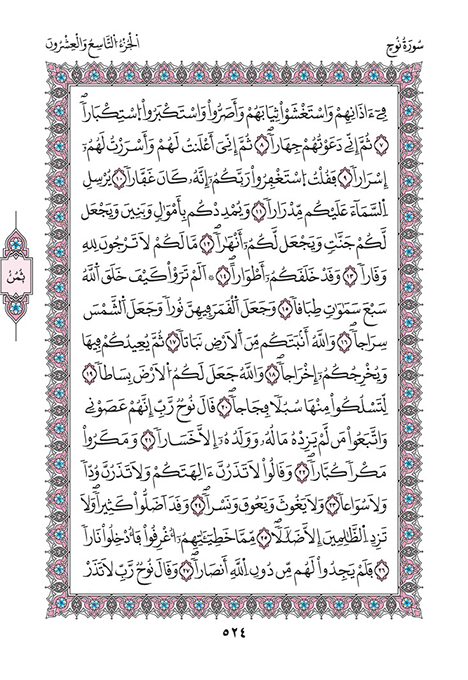 سُورَةُ نُوحٍ
اَلْجُزْءُ التَّاسِعُ وَالْعِشْرُونَ
فِےٓ ءَاذَانِهِمْ وَاسْتَغْشَوْاْ ثِيَابَهُمْ وَأَصَرُّواْ وَاسْتَكْبَرُواْ اُسْتِكْبَاراٗ
٧ ثُمَّ إِنِّے دَعَوْتُهُمْ جِهَاراٗ ٨ ثُمَّ إِنِّيَ أَعْلَنتُ لَهُمْ وَأَسْرَرْتُ لَهُمُۥٓ
إِسْرَاراٗ ٩ فَقُلْتُ اُسْتَغْفِرُواْ رَبَّكُمُۥٓ إِنَّهُۥ كَانَ غَفَّاراٗ ١٠ يُرْسِلِ
اِلسَّمَآءَ عَلَيْكُم مِّدْرَاراٗ ١١ وَيُمْدِدْكُم بِأَمْوَٰلٖ وَبَنِينَ وَيَجْعَل
لَّكُمْ جَنَّٰتٖ وَيَجْعَل لَّكُمُۥٓ أَنْهَٰراٗ ١٢ مَّا لَكُمْ لَا تَرْجُونَ لِلهِ
وَقَاراٗ ١٣ وَقَدْ خَلَقَكُمُۥٓ أَطْوَاراً ١٤ ۞ اَلَمْ تَرَوْاْ كَيْفَ خَلَقَ اَللَّهُ
سَبْعَ سَمَٰوَٰتٖ طِبَاقاٗ ١٥ وَجَعَلَ اَلْقَمَرَ فِيهِنَّ نُوراٗ وَجَعَلَ اَلشَّمْسَ
سِرَاجاٗ ١٦ وَاللَّهُ أَنۢبَتَكُم مِّنَ اَلْأَرْضِ نَبَاتاٗ ١٧ ثُمَّ يُعِيدُكُمْ فِيهَا
وَيُخْرِجُكُمُۥٓ إِخْرَاجاٗ ١٨ وَاللَّهُ جَعَلَ لَكُمُ اُلْأَرْضَ بِسَاطاٗ ١٩
لِّتَسْلُكُواْ مِنْهَا سُبُلاٗ فِجَاجاٗ ٢٠ قَالَ نُوحٞ رَّبِّ إِنَّهُمْ عَصَوْنِے
وَاتَّبَعُواْ مَن لَّمْ يَزِدْهُ مَالُهُۥ وَوَلَدُهُۥٓ إِلَّا خَسَاراٗ ٢١ وَمَكَرُواْ
مَكْراٗ كُبَّاراٗ ٢٢ وَقَالُواْ لَا تَذَرُنَّ ءَالِهَتَكُمْ وَلَا تَذَرُنَّ وُدّاٗ
وَلَا سُوَاعاٗ ٢٣ وَلَا يَغُوثَ وَيَعُوقَ وَنَسْراٗ ٢٤ وَقَدْ أَضَلُّواْ كَثِيراٗ وَلَا
تَزِدِ اِلظَّٰلِمِينَ إِلَّا ضَلَٰلاٗ ٢٥ مِّمَّا خَطِيٓـَٰٔتِهِمُۥٓ أُغْرِقُواْ فَأُدْخِلُواْ نَاراٗ
٢٦ فَلَمْ يَجِدُواْ لَهُم مِّن دُونِ اِللَّهِ أَنصَاراٗ ٢٧ وَقَالَ نُوحٞ رَّبِّ لَا تَذَرْ
ثُمُنُ
٥٢٤